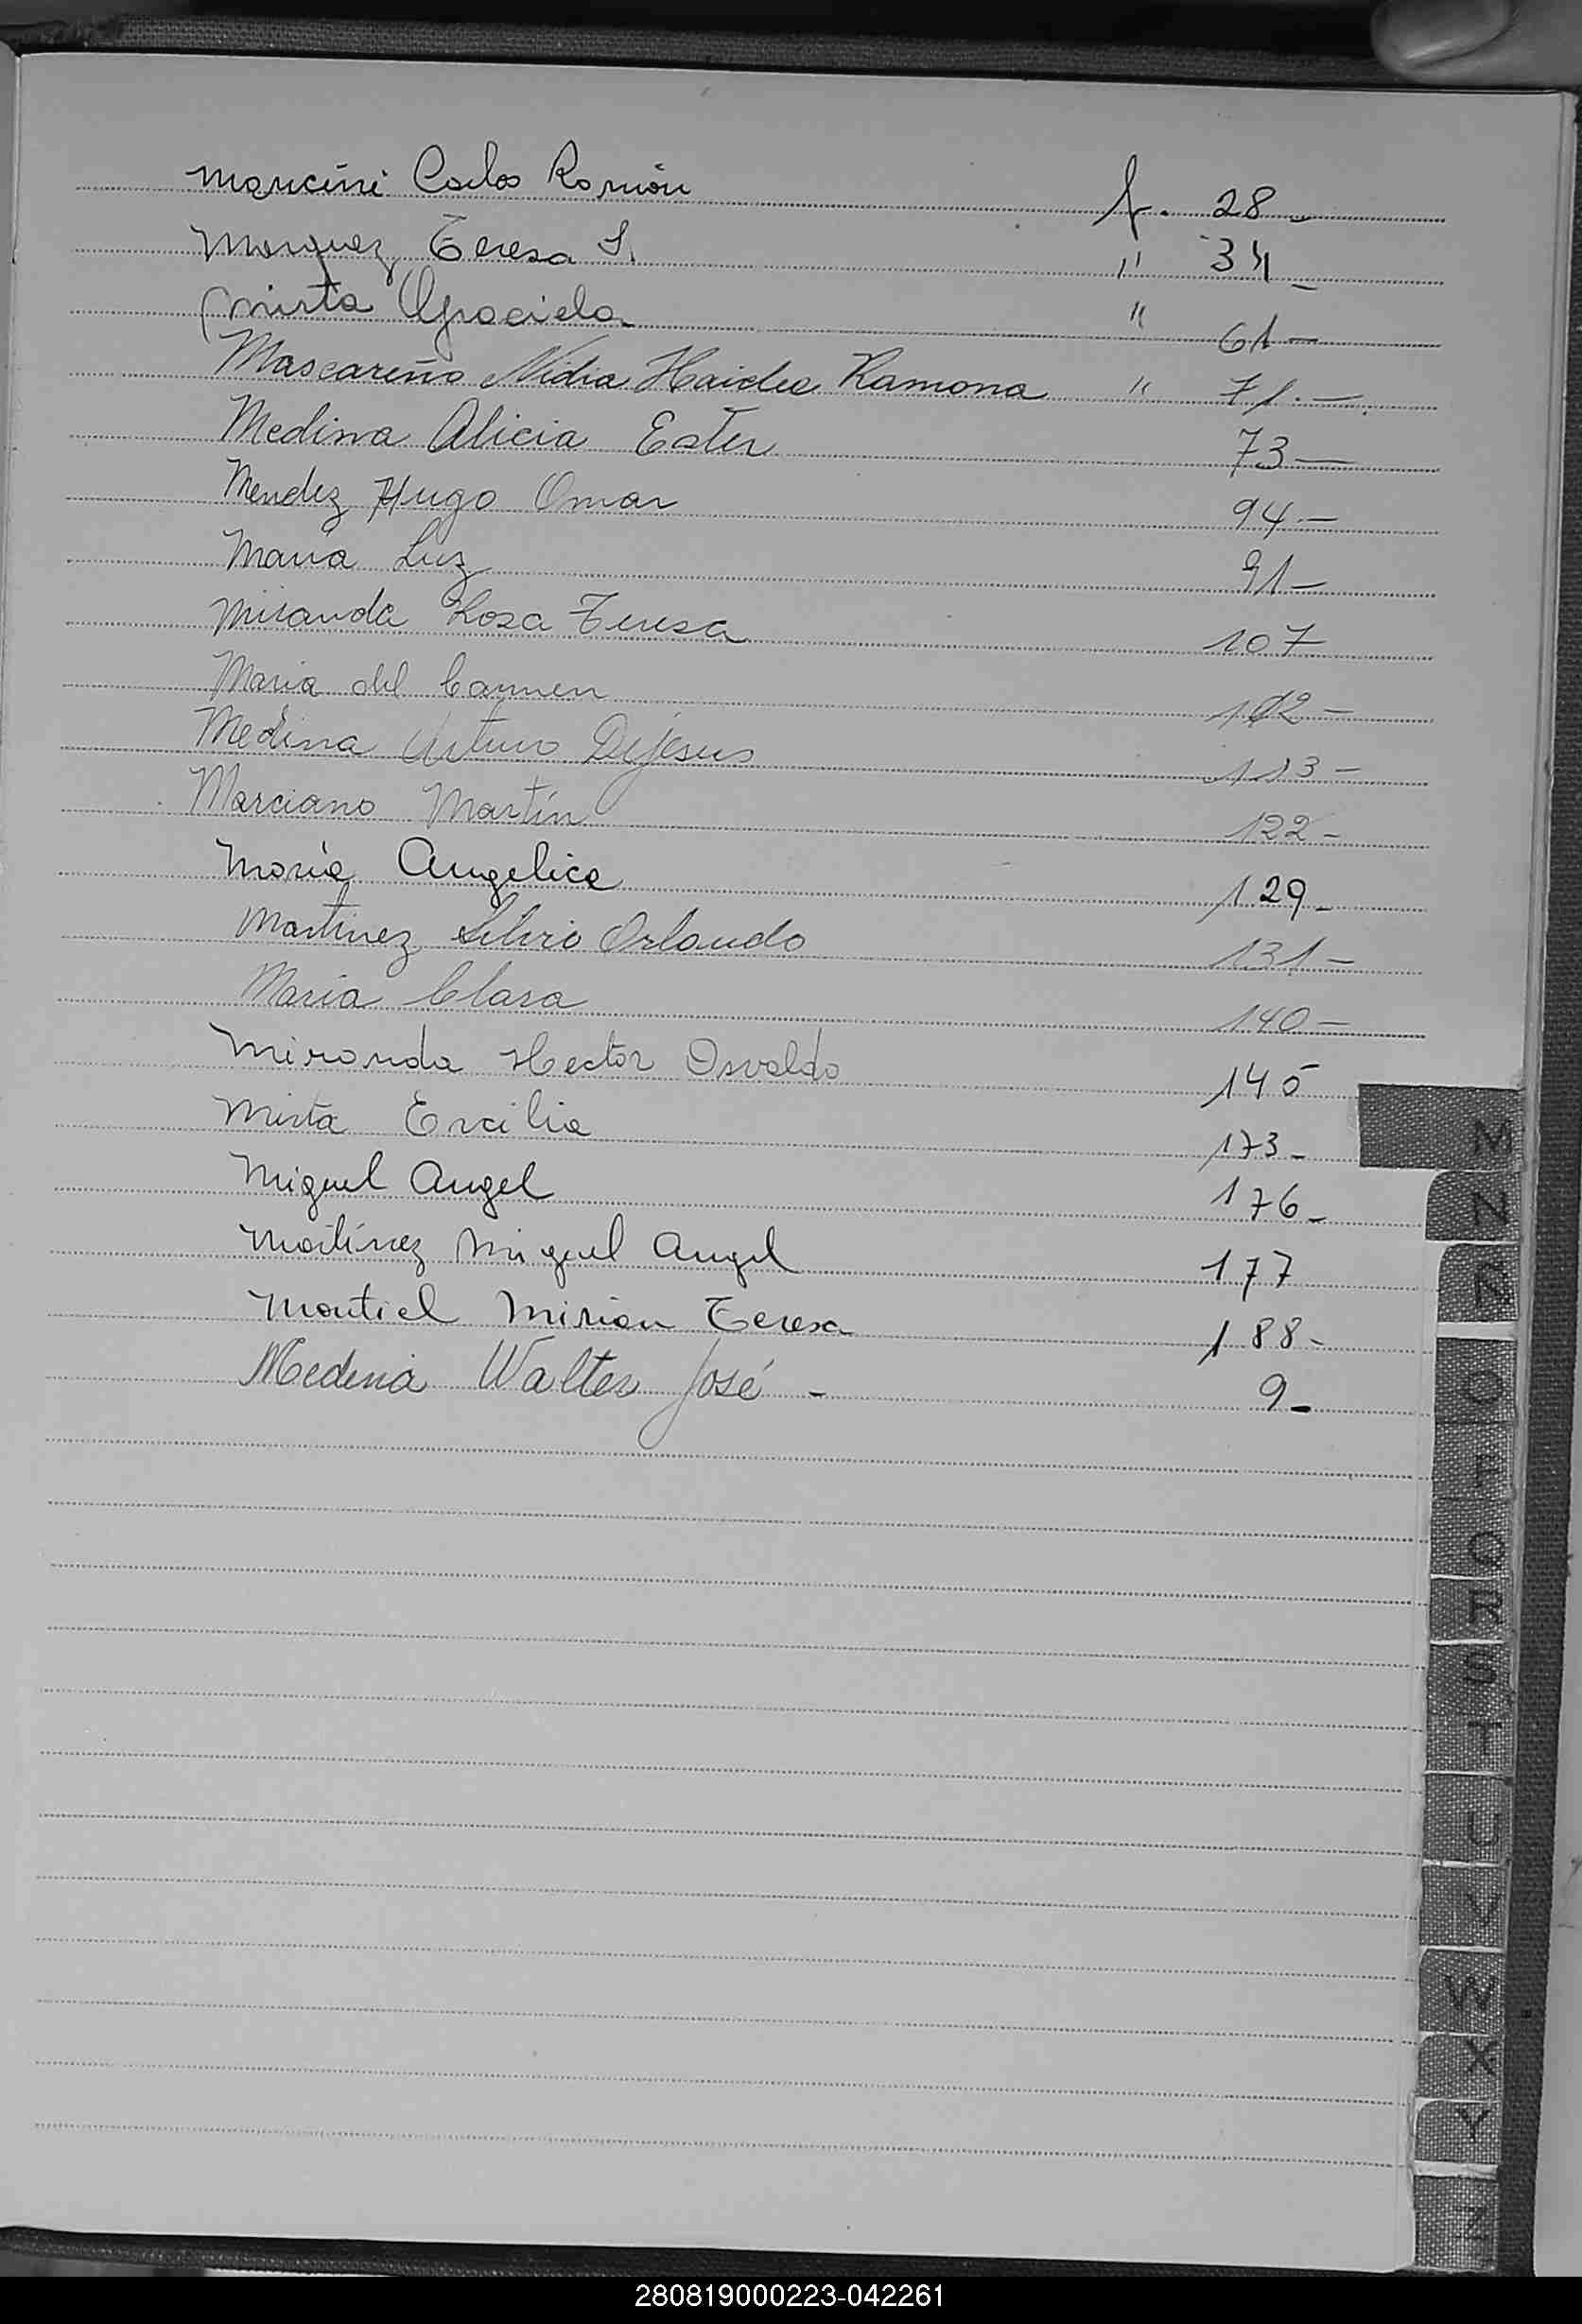 Mancini Carlos Ramón f. 28 -
Marquez Teresa S. " 34 -
(Mirta Graciela " 61 -
Mascareño Nidia Haidee Ramona " 71. -
Medina Alicia Ester 73 -
Mendez Hugo Omar 94. -
María Luz 91 -
Miranda Rosa Teresa 107
Maria del Carmen 102 -
Medina Arturo Dejesus 113 -
Marciano Martín 122 -
María Angelica 129 -
Martinez Silvio Orlando 131 -
Maria Clara 140 -
Miranda Hector Osvaldo 140
Mirta Ercilia 173 -
Miguel Angel 176 -
Martínez Miguel Angel 177
Montiel Mirian Teresa 188 -
Medina Walter José - 9 -
M
N
Ñ
O
P
Q
R
S
T
U
V
W
X
Y
Z
280819000223-042261